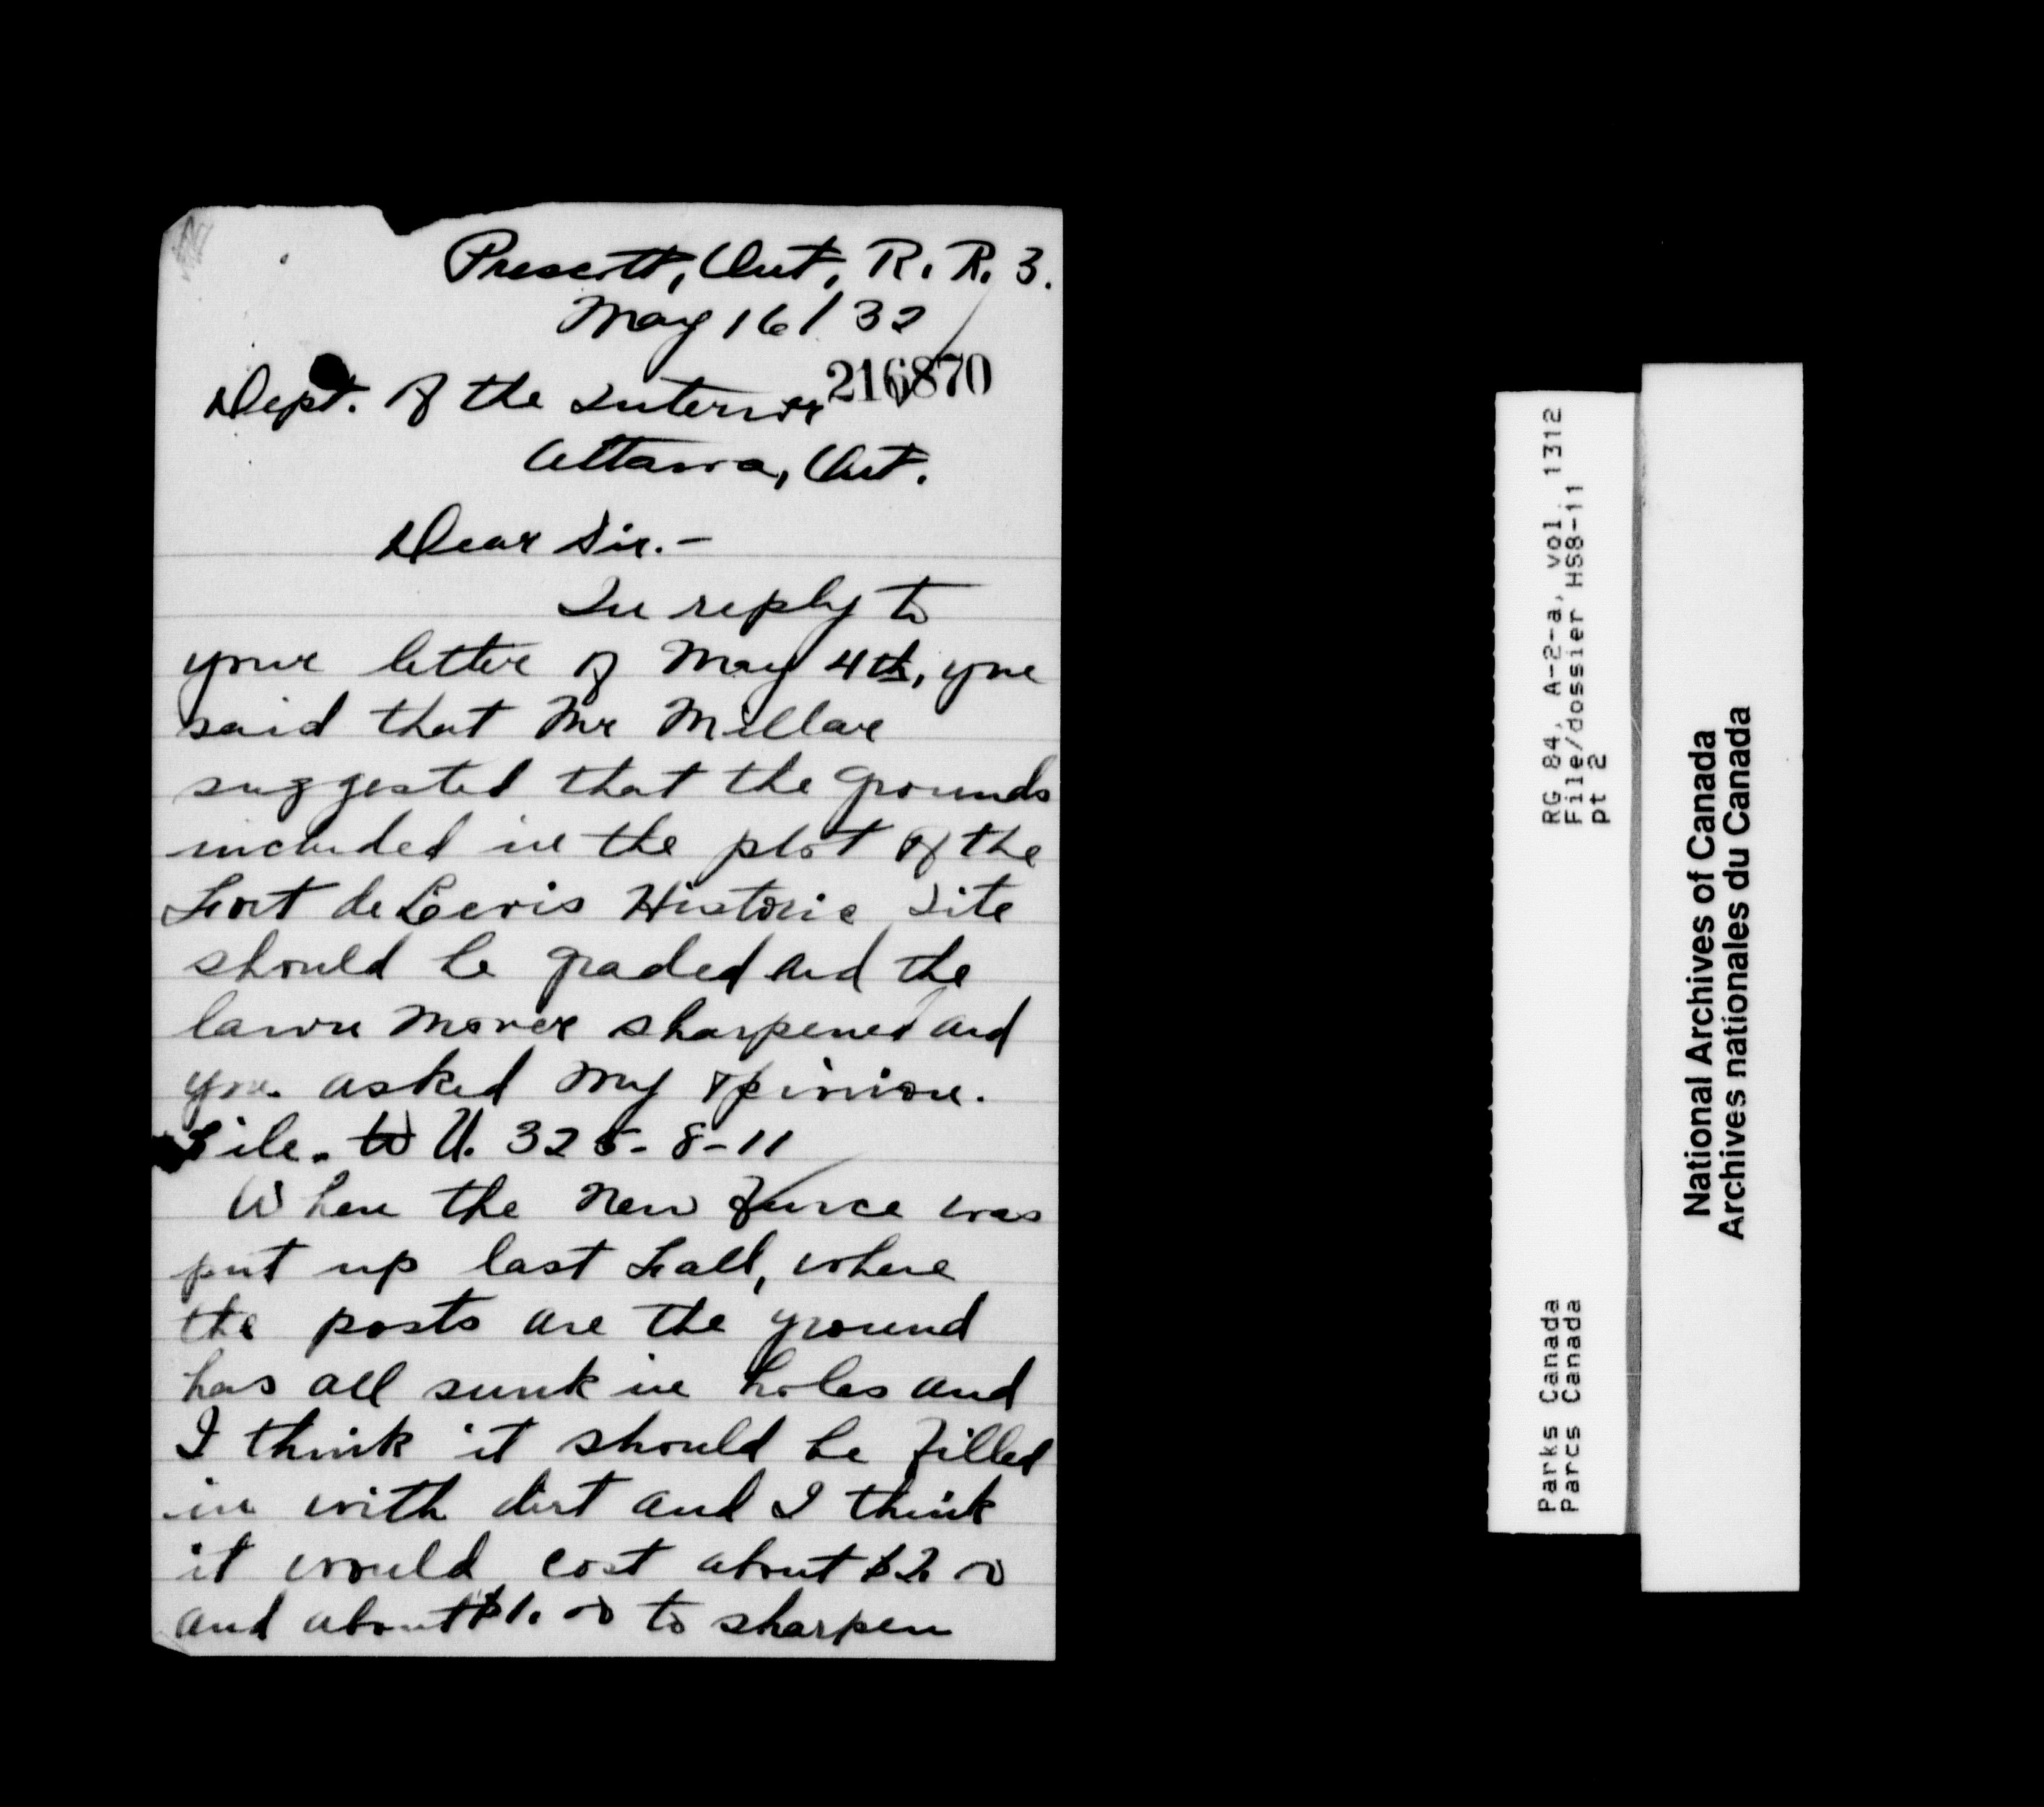 Prescott, Ont, R. R. 3.
May 16/32
216870
Dept. of the Interior
Ottawa, Ont.
Dear Sir.-
In reply to
your letter of May 4th, you
said that Mr Millar
suggested that the grounds
included in the plot of the
Fort de Levis Historic Site
should be graded and the
lawn mower sharpened and
you asked my opinion.
File. W U. 325-8-11
When the new Fence was
put up last Fall, where
the posts are the ground
has all sunk in holes and
I think it should be filled
in with dirt and I think
it would cost about $2.00
and about $1.00 to sharpen
RG 84, A-2-a, vol. 1312
File/dossier HS8-11
pt 2
Parks Canada
Parcs Canada
National Archives of Canada
Archives nationales du Canada